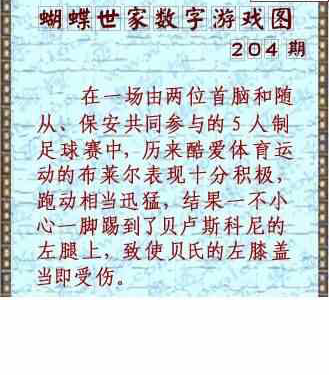 蝴蝶世家数字游戏图
204 期
在一场由两位首脑和随
从、保安共同参与的5人制
足球赛中，历来酷爱体育运
动的布莱尔表现十分积极，
跑动相当迅猛，结果一不小
心一脚踢到了贝卢斯科尼的
左腿上，致使贝氏的左膝盖
当即受伤。